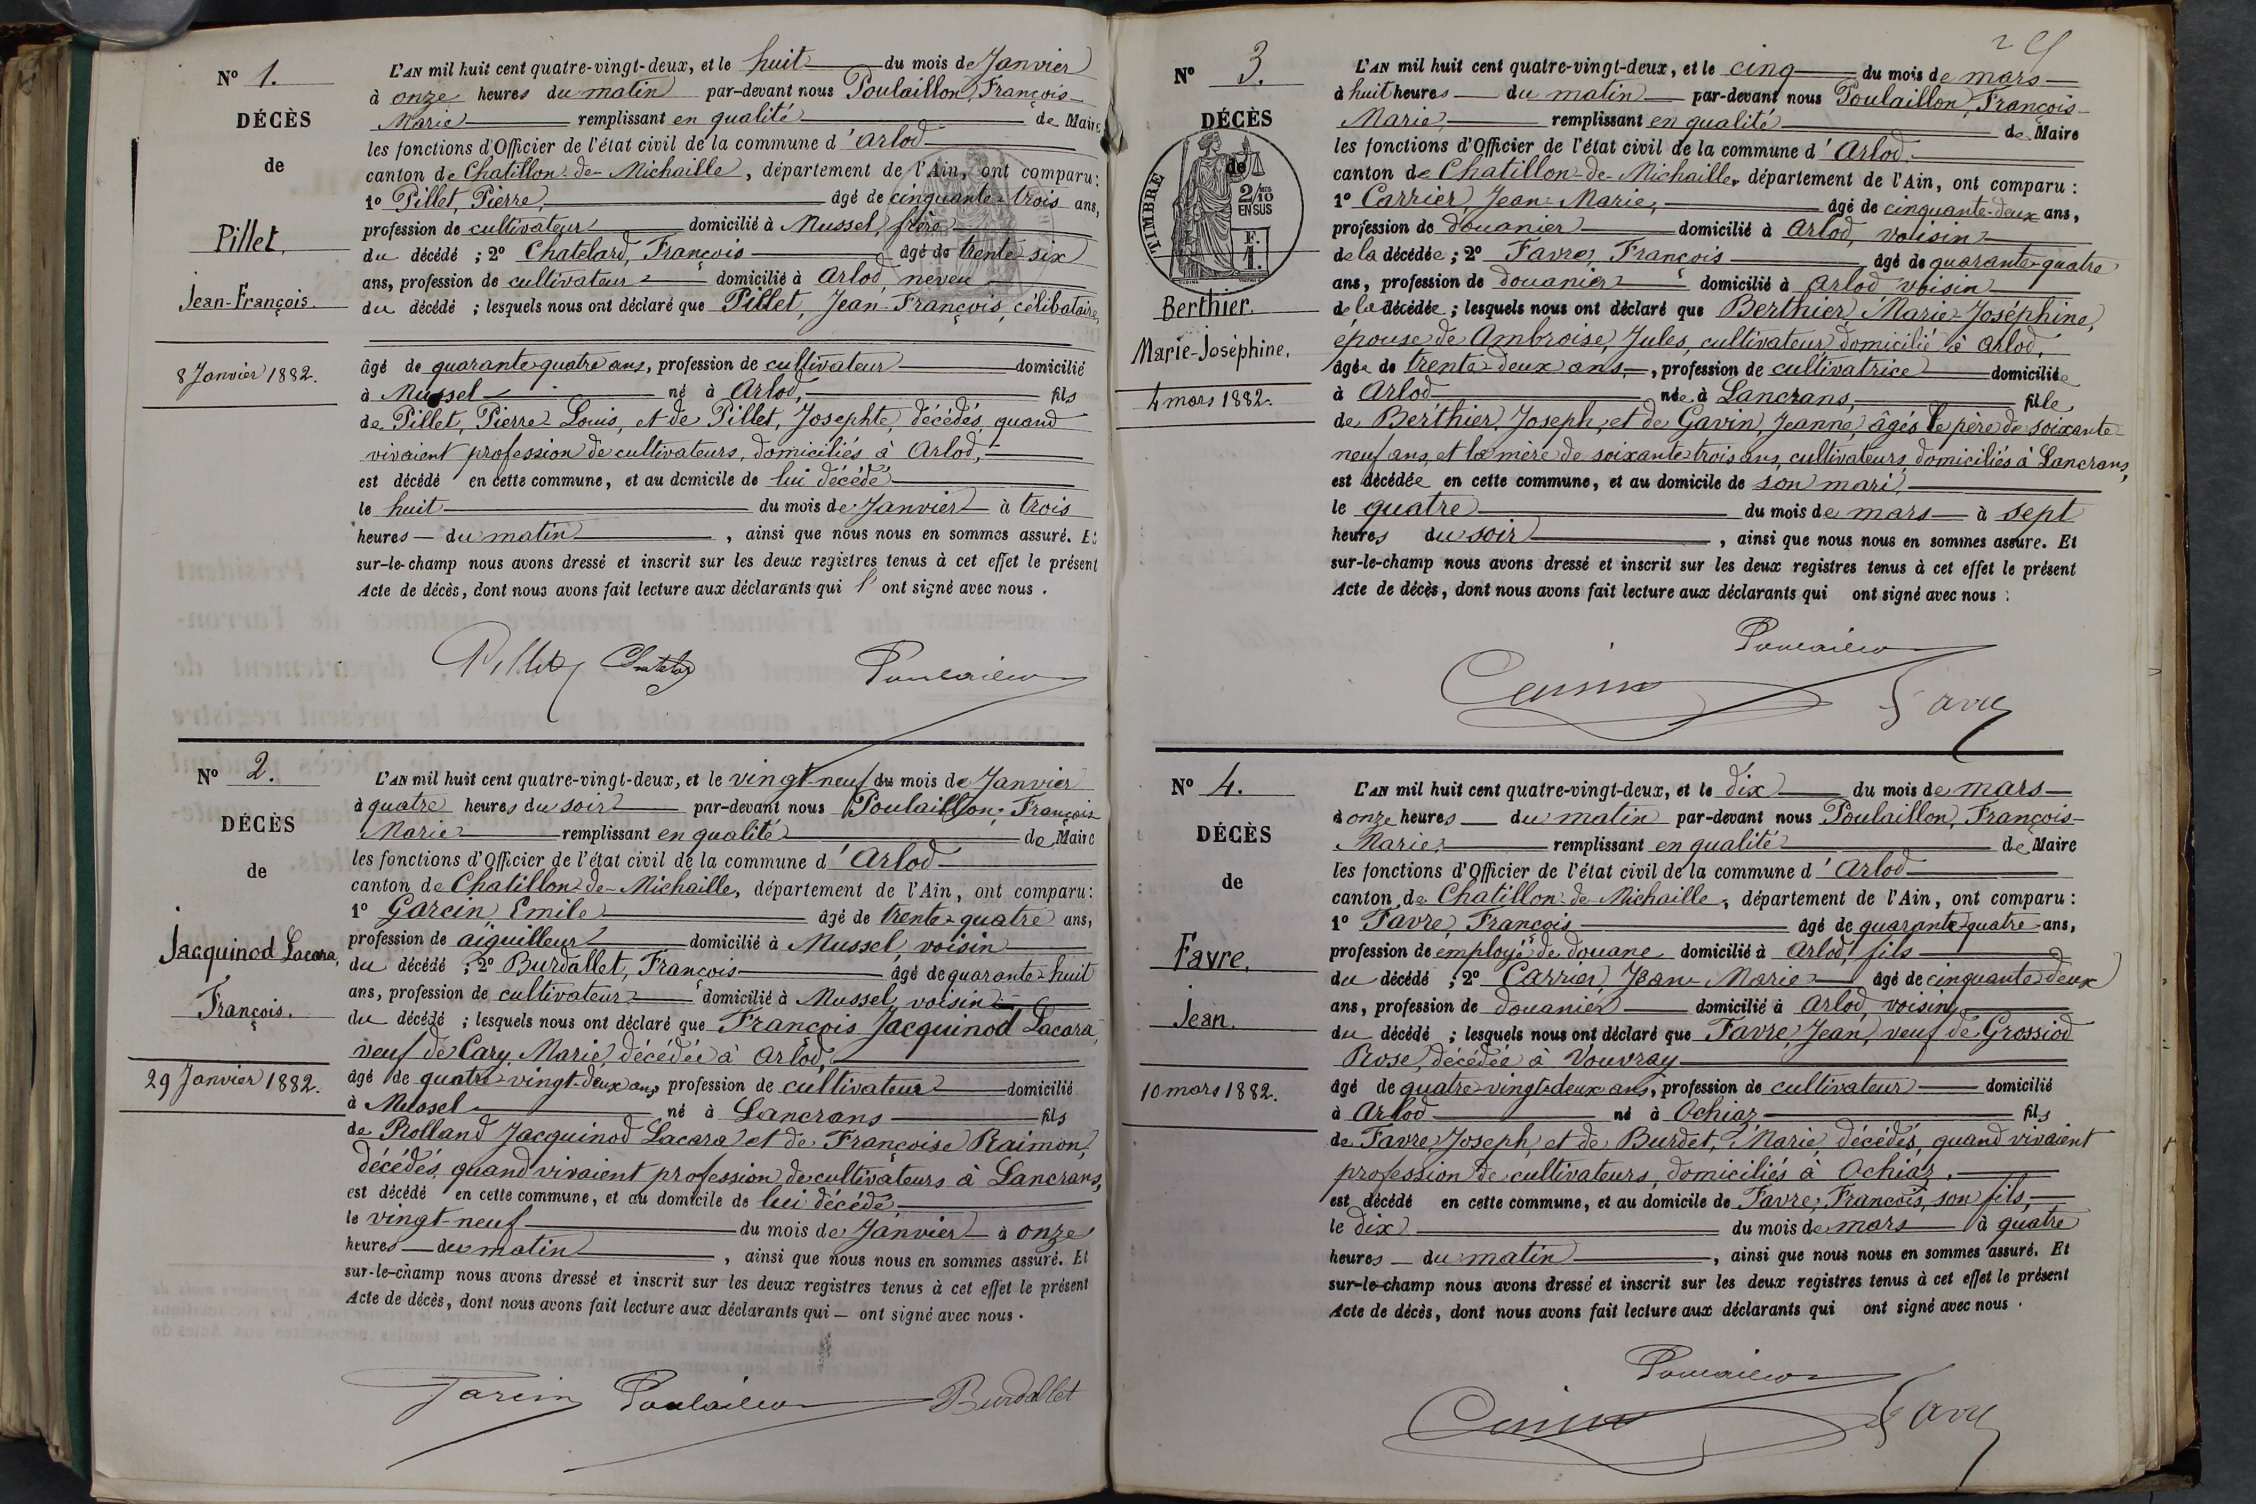 N° 1.
DÉCÈS
de
Pillet,
Jean-François.
8 Janvier 1882.
L'AN mil huit cent quatre-vingt-deux, et le huit du mois de Janvier
à onze heures du matin par-devant nous Poulaillon, François-
Marie remplissant en qualité de Maire
les fonctions d'Officier de l'état civil de la commune d'Arlod
canton de Chatillon-de-Michaille, département de l'Ain, ont comparu :
1° Pillet, Pierre, âgé de cinquante-trois ans,
profession de cultivateur domicilié à Mussel, frère
du décédé ; 2° Chatelard, François âgé de trente-six
ans, profession de cultivateur domicilié à Arlod, neveu
du décédé ; lesquels nous ont déclaré que Pillet, Jean-François, célibataire,
âgé de quarante-quatre ans, profession de cultivateur domicilié
à Mussel né à Arlod, fils
de Pillet, Pierre-Louis, et de Pillet, Josephte, décédés, quand
vivaient profession de cultivateurs, domiciliés à Arlod,
est décédé en cette commune, et au domicile de lui décédé
le huit du mois de Janvier à trois
heures du matin, ainsi que nous nous en sommes assuré. Et
sur-le-champ nous avons dressé et inscrit sur les deux registres tenus à cet effet le présent
Acte de décès, dont nous avons fait lecture aux déclarants qui l'ont signé avec nous.
Pillet Chatelard Poulaillon
N° 2.
DÉCÈS
de
Jacquinod Lacara,
François.
29 Janvier 1882.
L'AN mil huit cent quatre-vingt-deux, et le vingt-neuf du mois de Janvier
à quatre heures du soir par-devant nous Poulaillon, François
Marie remplissant en qualité de Maire
les fonctions d'Officier de l'état civil de la commune d'Arlod
canton de Chatillon-de-Michaille, département de l'Ain, ont comparu :
1° Garcin, Emile âgé de trente-quatre ans,
profession de aiguilleur domicilié à Mussel, voisin
du décédé ; 2° Burdallet, François âgé de quarante-huit
ans, profession de cultivateur domicilié à Mussel, voisin
du décédé ; lesquels nous ont déclaré que François Jacquinod Lacara,
veuf de Cary Marie, décédée à Arlod,
âgé de quatre-vingt-deux ans, profession de cultivateur domicilié
à Mussel né à Lancrans fils
de Rolland Jacquinod Lacara et de Françoise Raimon,
décédés, quand vivaient profession de cultivateurs à Lancrans,
est décédé en cette commune, et au domicile de lui décédé,
le vingt-neuf du mois de Janvier à onze
heures du matin, ainsi que nous nous en sommes assuré. Et
sur-le-champ nous avons dressé et inscrit sur les deux registres tenus à cet effet le présent
Acte de décès, dont nous avons fait lecture aux déclarants qui ont signé avec nous.
Garcin Poulaillon Burdallet
N° 3.
DÉCÈS
de
TIMBRE
2/10
EN SUS
F.
1.
Berthier.
Marie-Joséphine.
4 mars 1882.
L'AN mil huit cent quatre-vingt-deux, et le cinq du mois de mars
à huit heures du matin par-devant nous Poulaillon, François-
Marie, remplissant en qualité de Maire
les fonctions d'Officier de l'état civil de la commune d'Arlod
canton de Chatillon-de-Michaille, département de l'Ain, ont comparu :
1° Carrier, Jean-Marie, âgé de cinquante-deux ans,
profession de douanier domicilié à Arlod, voisin
de la décédée ; 2° Favre, François âgé de quarante-quatre
ans, profession de douanier domicilié à Arlod voisin
de la décédée ; lesquels nous ont déclaré que Berthier, Marie-Joséphine,
épouse de Ambroise, Jules, cultivateur, domicilié à Arlod,
âgée de trente-deux ans, profession de cultivatrice domiciliée
à Arlod née à Lancrans, fille
de Berthier, Joseph, et de Gavin, Jeanne, âgés le père de soixante-
neuf ans, et la mère de soixante-trois ans, cultivateurs, domiciliés à Lancrans,
est décédée en cette commune, et au domicile de son mari,
le quatre du mois de mars à sept
heures du soir, ainsi que nous nous en sommes assuré. Et
sur-le-champ nous avons dressé et inscrit sur les deux registres tenus à cet effet le présent
Acte de décès, dont nous avons fait lecture aux déclarants qui ont signé avec nous :
Poulaillon
Favre
N° 4.
DÉCÈS
de
Favre,
Jean.
10 mars 1882.
L'AN mil huit cent quatre-vingt-deux, et le dix du mois de mars
à onze heures du matin par-devant nous Poulaillon, François-
Marie, remplissant en qualité de Maire
les fonctions d'Officier de l'état civil de la commune d'Arlod
canton de Chatillon-de-Michaille, département de l'Ain, ont comparu :
1° Favre, François âgé de quarante-quatre ans,
profession de employé de douane domicilié à Arlod, fils
du décédé ; 2° Carrier, Jean-Marie âgé de cinquante-deux
ans, profession de douanier domicilié à Arlod, voisin,
du décédé ; lesquels nous ont déclaré que Favre, Jean, veuf de Grossiod
Rose, décédée à Vouvray
âgé de quatre-vingt-deux ans, profession de cultivateur domicilié
à Arlod né à Ochiaz fils
de Favre, Joseph, et de Burdet, Marie, décédés, quand vivaient
profession de cultivateurs, domiciliés à Ochiaz,
est décédé en cette commune, et au domicile de Favre, François, son fils,
le dix du mois de mars à quatre
heures du matin, ainsi que nous nous en sommes assuré. Et
sur-le-champ nous avons dressé et inscrit sur les deux registres tenus à cet effet le présent
Acte de décès, dont nous avons fait lecture aux déclarants qui ont signé avec nous.
Poulaillon
Favre